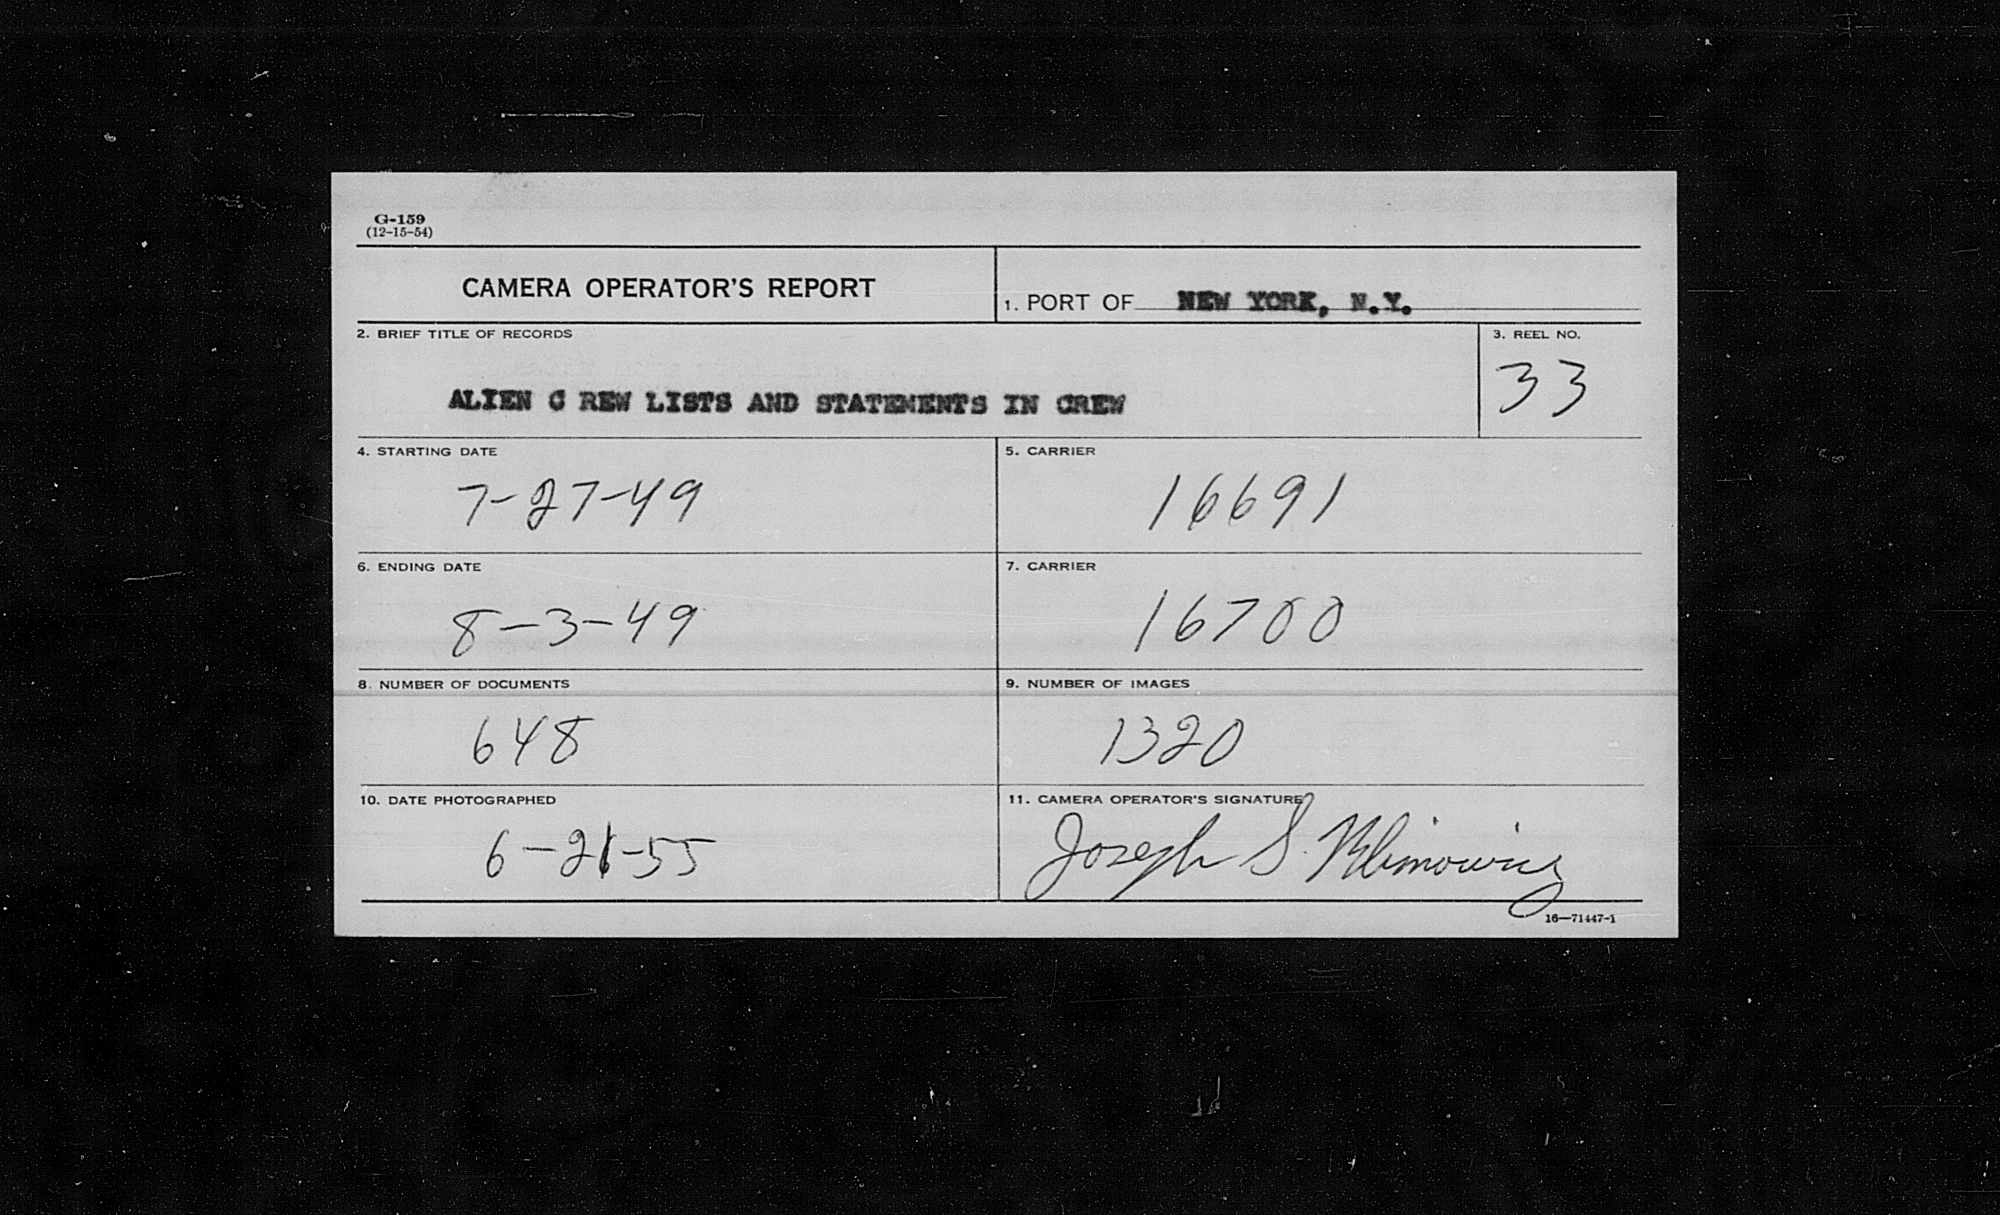 G-159
(12-15-54)
CAMERA OPERATOR'S REPORT
1. PORT OF NEW YORK, N.Y.
2. BRIEF TITLE OF RECORDS
ALIEN C REW LISTS AND STATEMENTS IN CREW
3. REEL NO.
33
4. STARTING DATE
7-27-49
5. CARRIER
16691
6. ENDING DATE
8-3-49
7. CARRIER
16700
8. NUMBER OF DOCUMENTS
648
9. NUMBER OF IMAGES
1320
10. DATE PHOTOGRAPHED
6-21-55
11. CAMERA OPERATOR'S SIGNATURE
Joseph S. Klimowicz
16—71447-1